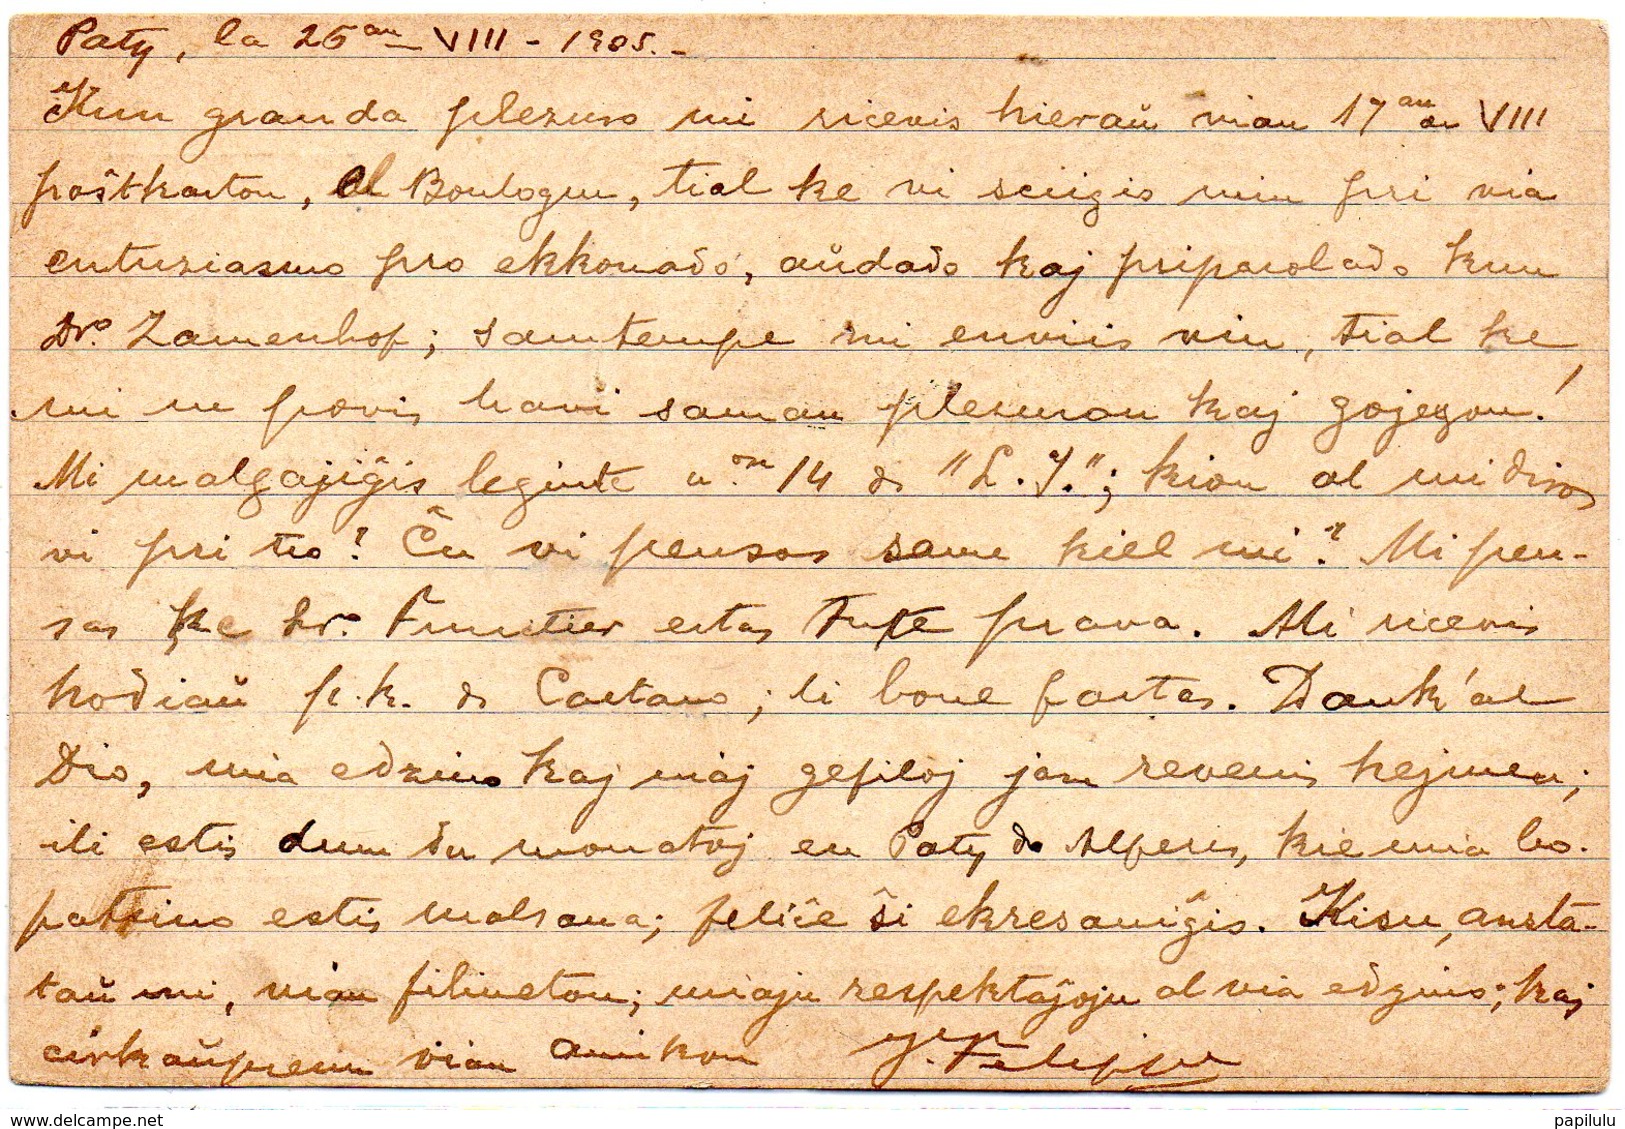 Paty, la 26an VIII - 1905.-
Kun granda plezuro mi ricevis hieraŭ vian 17an VIII
poŝtkarton, el Boulogne, tial ke vi sciigis min pri via
entuziasmo pro ekkonado, aŭdado kaj priparolado kun
Dro. Zamenhof; samtempe mi enviis vin, tial ke
mi ne povis havi saman plezuron kaj gojegon!
Mi malgajiĝis leginte non 14 de "L. I."; kion al mi diros
vi pri tio? Ĉu vi pensas same kiel mi? Mi pen-
sas ke Dro. Fruictier estas tute prava. Mi ricevis
hodiaŭ p.k. de Caetano; li bone fartas. Dank' al
Dio, mia edzino kaj miaj gefiloj jam revenis hejmen;
ili estis dum du monatoj en Paty do Alferes, kie mia bo-
patrino estis malsana; feliĉe ŝi ekresaniĝis. Kisu, ansta-
taŭ mi, vian filineton; miajn respektaĵojn al via edzino; kaj
cirkaŭprenu vian amikon
papilulu
www.delcampe.net